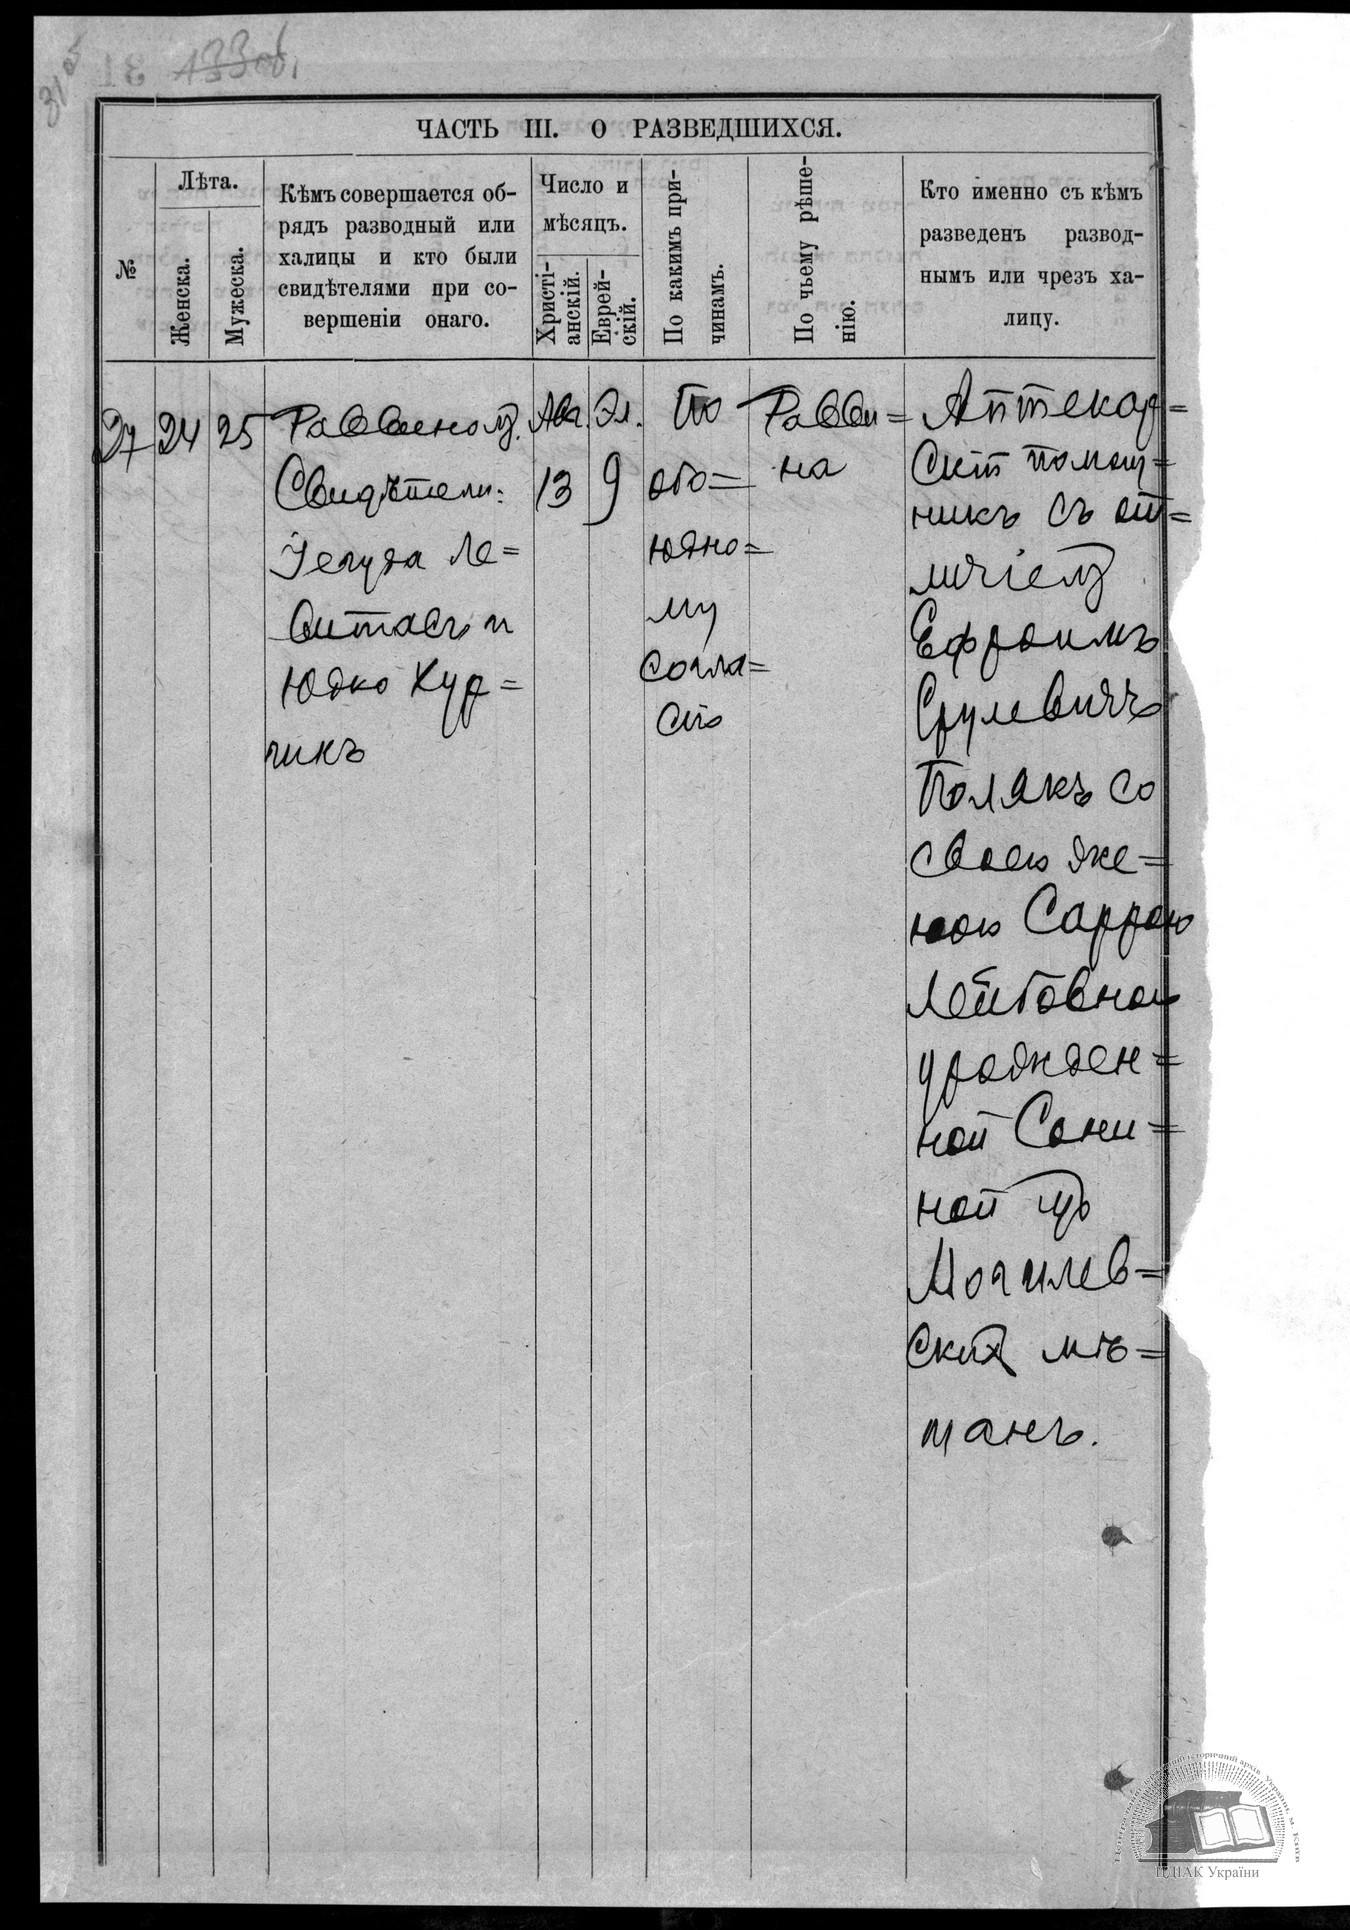 133об.
31
ЧАСТЬ III. О РАЗВЕДШИХСЯ.
№
Лѣта.
Женска.
Мужеска.
Кѣмъ совершается об-
рядъ разводный или
халицы и кто были
свидѣтелями при со-
вершеніи онаго.
Число и
мѣсяцъ.
Христі-
анскій.
Еврей-
скій.
По какимъ при-
чинамъ.
По чьему рѣше-
нію.
Кто именно съ кѣмъ
разведенъ развод-
нымъ или чрезъ ха-
лицу.
27
24
25
Раввиномъ.
Свидѣтели:
Іегуда Ле=
витасъ и
Юдко Хур=
чикъ
Авг.
13
Эл.
9
По
обо=
юдно=
му
согла=
сію
Равви=
на
Аптекар=
скій помощ=
никъ съ от=
личіемъ
Ефроимъ
Срулевичъ
Полякъ со
своею же=
ною Саррою
Лейбовною
урожден=
ной Сони=
ной изъ
Могилев=
скихъ мѣ=
щанъ.
Центральний державний історичний архів України, м. Київ
ЦДІАК України